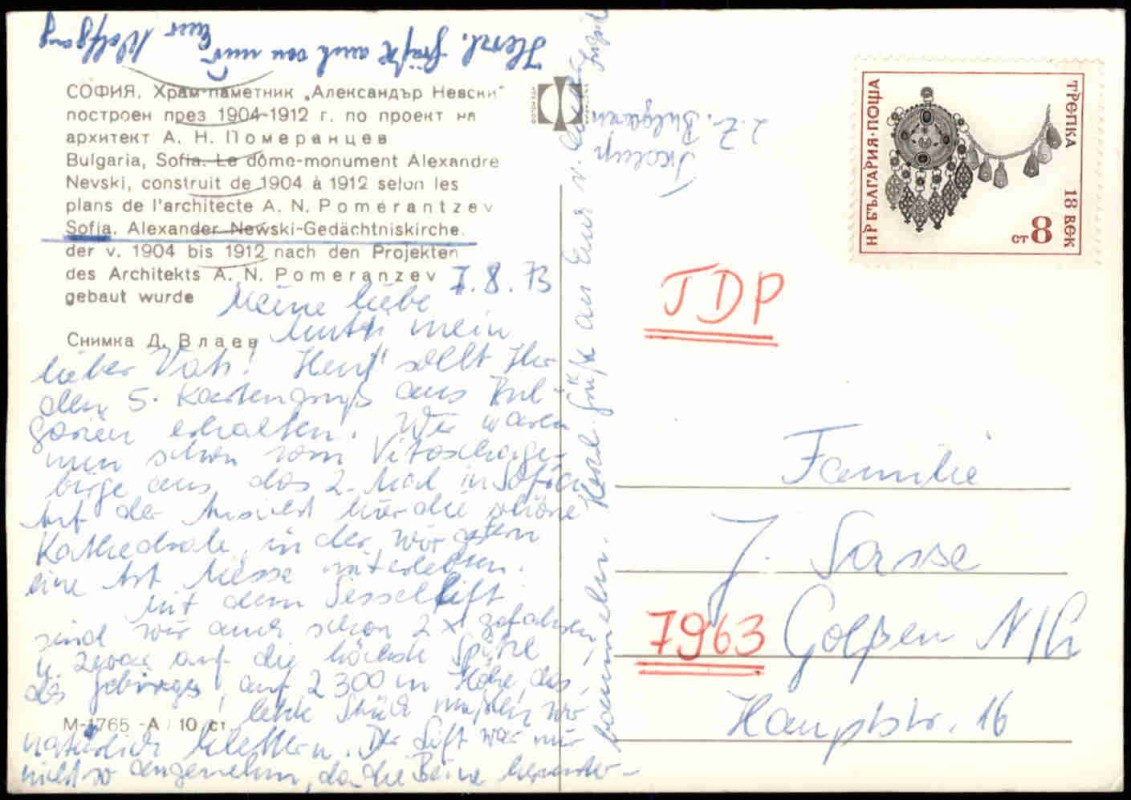 Herzl. Grüße auch von mir
Euer Wolfgang
СОФИЯ. Храм-паметник „Александър Невски"
построен през 1904-1912 г. по проект на
архитект А. Н. Померанцев
Bulgaria, Sofia. Le dôme-monument Alexandre
Nevski, construit de 1904 à 1912 selon les
plans de l'architecte A. N. Pomerantzev
Sofia. Alexander Newski-Gedächtniskirche
der v. 1904 bis 1912 nach den Projekten
des Architekts A. N. Pomeranzev
gebaut wurde
Снимка Д. Влаев
М-1765 -А 10 ст
7.8.73
Meine liebe
Mutti mein
lieber Vati! Heut' sollt Ihr
den 5. Kartengruß aus Bul-
garien erhalten. Wir waren
nun schon vom Vitoschage-
birge aus das 2. Mal in Sofia
Auf der Ansicht hier die schöne
Kathedrale, in der wir gestern
eine Art Messe miterlebten.
Mit dem Sessellift
sind wir auch schon 2 x gefahren
u. zwar auf die höchste Spitze
des Gebirges, auf 2300 m Höhe, das
letzte Stück mußten wir
natürlich klettern. Der Lift war nur
nicht so angenehm, da die Beine herunter-
baumeln. Herzl. Grüße an Euch v.
z. Z. Bulgarien
НР БЪЛГАРИЯ·ПОЩА
ТРЕПКА
18 ВЕК
8 СТ
TDP
Familie
J. Sasse
7963 Golßen N/L
Hauptstr. 16